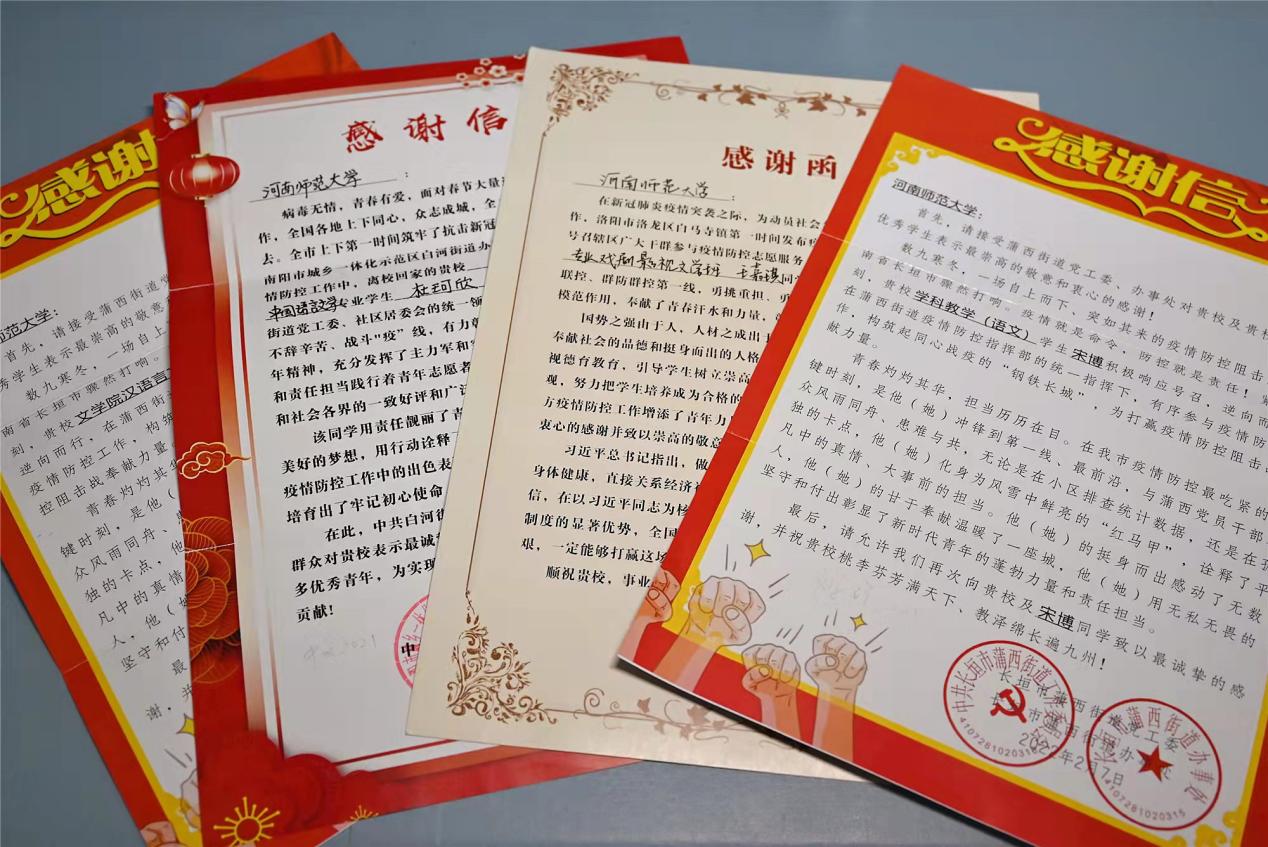 感谢
范大学:
首先,请接受蒲西街道党
秀学生表示最崇高的敬意
数九寒冬,一场自上
南省长垣市骤然打响。
刻,贵校文学院汉语言
逆向而行,在蒲西街道
疫情防控工作,构筑
控阻击战奉献力量
青春灼灼其华
键时刻,是他(
众风雨同舟、
独的卡点,他
凡中的真情
人,他(她
坚守和付
最
谢,并
感谢信
河南师范大学:
病毒无情,青春有爱,面对春节大量
作,全国各地上下同心,众志成城,全
去。全市上下第一时间筑牢了抗击新冠
南阳市城乡一体化示范区白河街道办
情防控工作中,离校回家的贵校
中国语言文学专业学生 杜珂欣
街道党工委、社区居委会的统一领
不辞辛苦、战斗“疫”线,有力
年精神,充分发挥了主力军和
和责任担当践行着青年志愿者
和社会各界的一致好评和广
该同学用责任靓丽了青
美好的梦想,用行动诠释
疫情防控工作中的出色表
培育出了牢记初心使命
在此,中共白河
群众对贵校表示最诚
多优秀青年,为实现
贡献!
感谢函
河南师范大学:
在新冠肺炎疫情突袭之际,为动员社会
作,洛阳市洛龙区白马寺镇第一时间发布
号召辖区广大干群参与疫情防控志愿服务
专业戏剧影视文学班 王嘉琪同
联控、群防群控第一线,勇挑重担、勇
模范作用,奉献了青春汗水和力量,
国势之强由于人,人材之成出于
奉献社会的品德和挺身而出的人格
视德育教育,引导学生树立崇高
现,努力把学生培养成为合格的
方疫情防控工作增添了青年力
衷心的感谢并致以崇高的敬意
习近平总书记指出,做
身体健康,直接关系经济
信,在以习近平同志为核
制度的显著优势,全国
艰,一定能够打赢这场
顺祝贵校,事业
感谢信
河南师范大学:
首先,请接受蒲西街道党工委、办事处对贵校及贵校
优秀学生表示最崇高的敬意和衷心的感谢!
数九寒冬,一场自上而下、突如其来的疫情防控阻击
南省长垣市骤然打响。疫情就是命令,防控就是责任!
刻,贵校学科教学(语文)学生宋博积极响应号召,逆向而
在蒲西街道疫情防控指挥部的统一指挥下,有序参与疫情防
作,构筑起同心战疫的“钢铁长城”,为打赢疫情防控阻击
献力量。
青春灼灼其华,担当历历在目。在我市疫情防控最吃紧的
键时刻,是他(她)冲锋到第一线、最前沿,与蒲西党员干部
众风雨同舟、患难与共,无论是在小区排查统计数据,还是在
独的卡点,他(她)化身为风雪中鲜亮的“红马甲”,诠释了平
凡中的真情、大事前的担当。他(她)的挺身而出感动了无数
人,他(她)的甘于奉献温暖了一座城,他(她)用无私无畏的
坚守和付出彰显了新时代青年的蓬勃力量和责任担当。
最后,请允许我们再次向贵校及宋博同学致以最诚挚的感
谢,并祝贵校桃李芬芳满天下、教泽绵长遍九州!
长垣市蒲西街道党工委
长垣市蒲西街道办事处
2022年2月7日
4107281020315